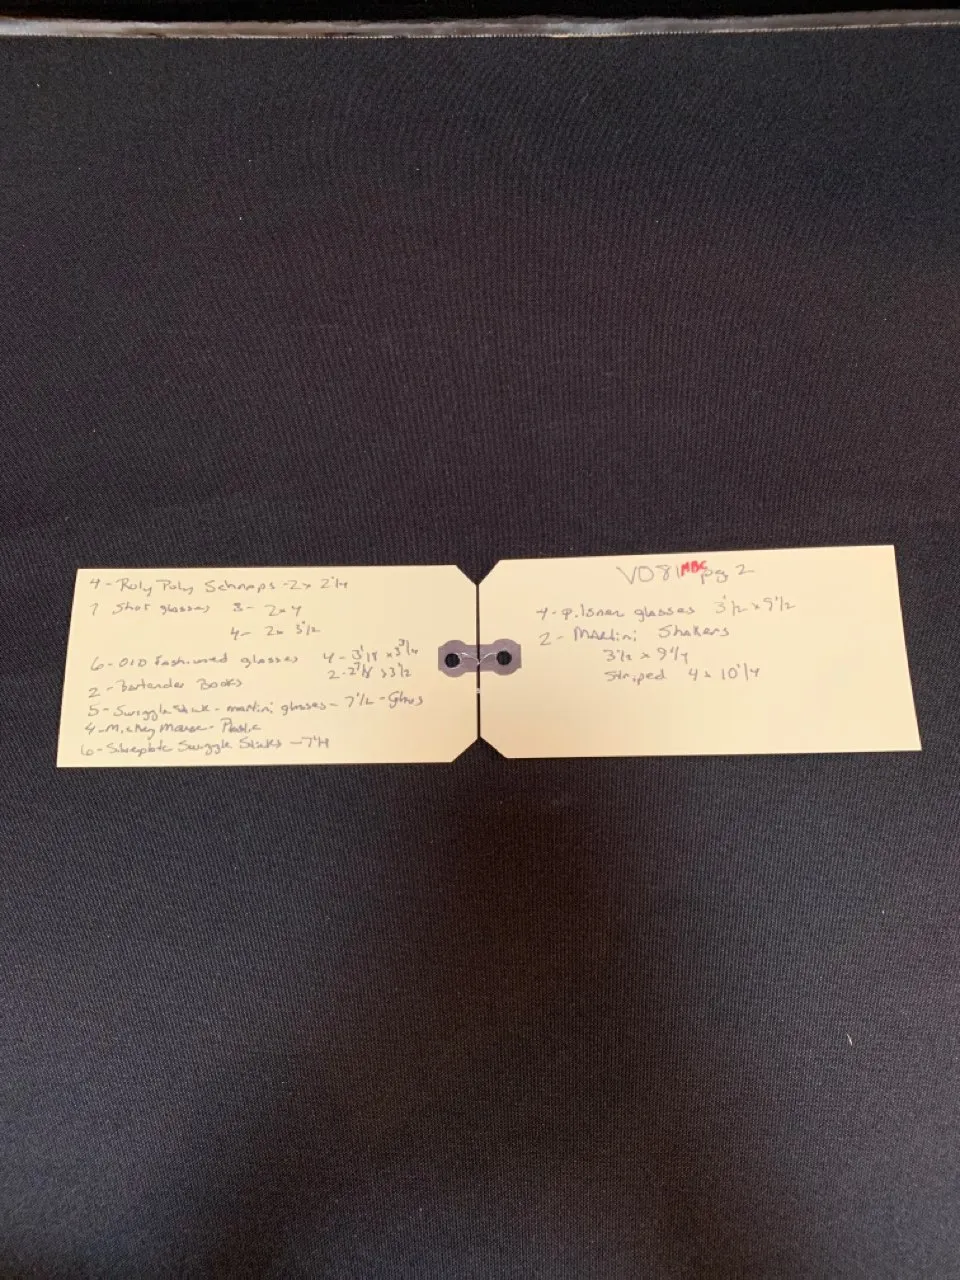 4 - Roly Poly Schnaps - 2 x 2 1/4
7 Shot glasses 3 - 2 x 4
4 - 2 x 3 1/2
6 - OLD Fashioned glasses 4 - 3 1/8 x 3 3/4
2 - 2 7/8 x 3 1/2
2 - Bartender Books
5 - Swiggle Stick - martini glasses - 7 1/2 - Glass
4 - Mickey Mouse - Plastic
6 - Swiggle Sticks - 7 1/4
VO81 MBC pg 2
4 - Pilsner glasses 3 1/2 x 9 1/2
2 - Martini Shakers
3 1/2 x 9 1/4
Striped 4 x 10 1/4